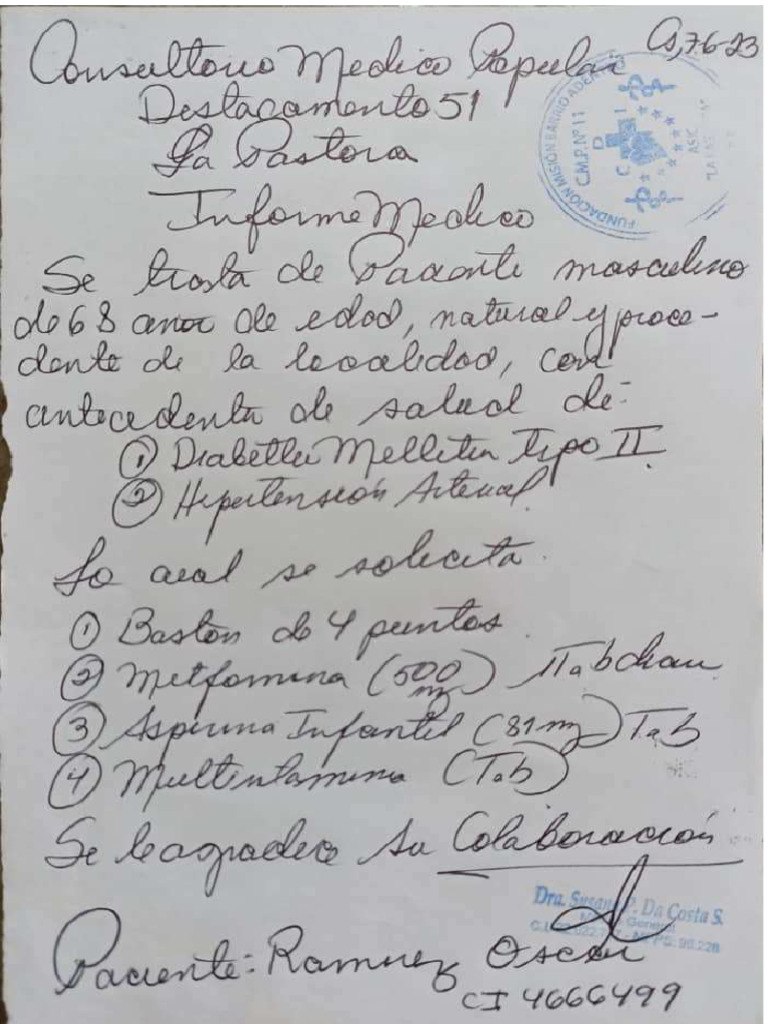 Consultorio Medico Popular Cs, 7-6-23
Destacamento 51
La Pastora
Informe Medico
Se trata de Paciente masculino
de 68 años de edad, natural y proce-
dente de la localidad, con
antecedente de salud de:
① Diabettes Mellitus tipo II
② Hipertensión Arterial
Lo cual se solicita.
① Baston de 4 puntos.
② Metfomina (500 mg) 1 Tab diaria
③ Aspirina Infantil (81 mg) Tab
④ Multivitamina (Tab)
Se le agradece su Colaboración
Paciente: Ramirez Oscar
CI 4666499
FUNDACION MISION BARRIO ADENTRO
C.M.P. Nº 11
ASIC
Dra. Susana P. Da Costa S.